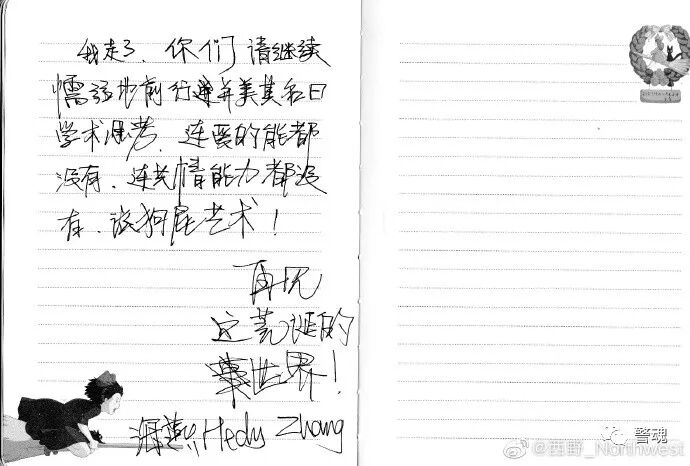 我走了，你们请继续
懦弱地前行并美其名曰
学术思考，连爱的能都
没有，连共情能力都没
有，谈狗屁艺术！
再见
这荒诞的
世界！
海燕 Hedy Zhang
警魂
@西野_Northwest